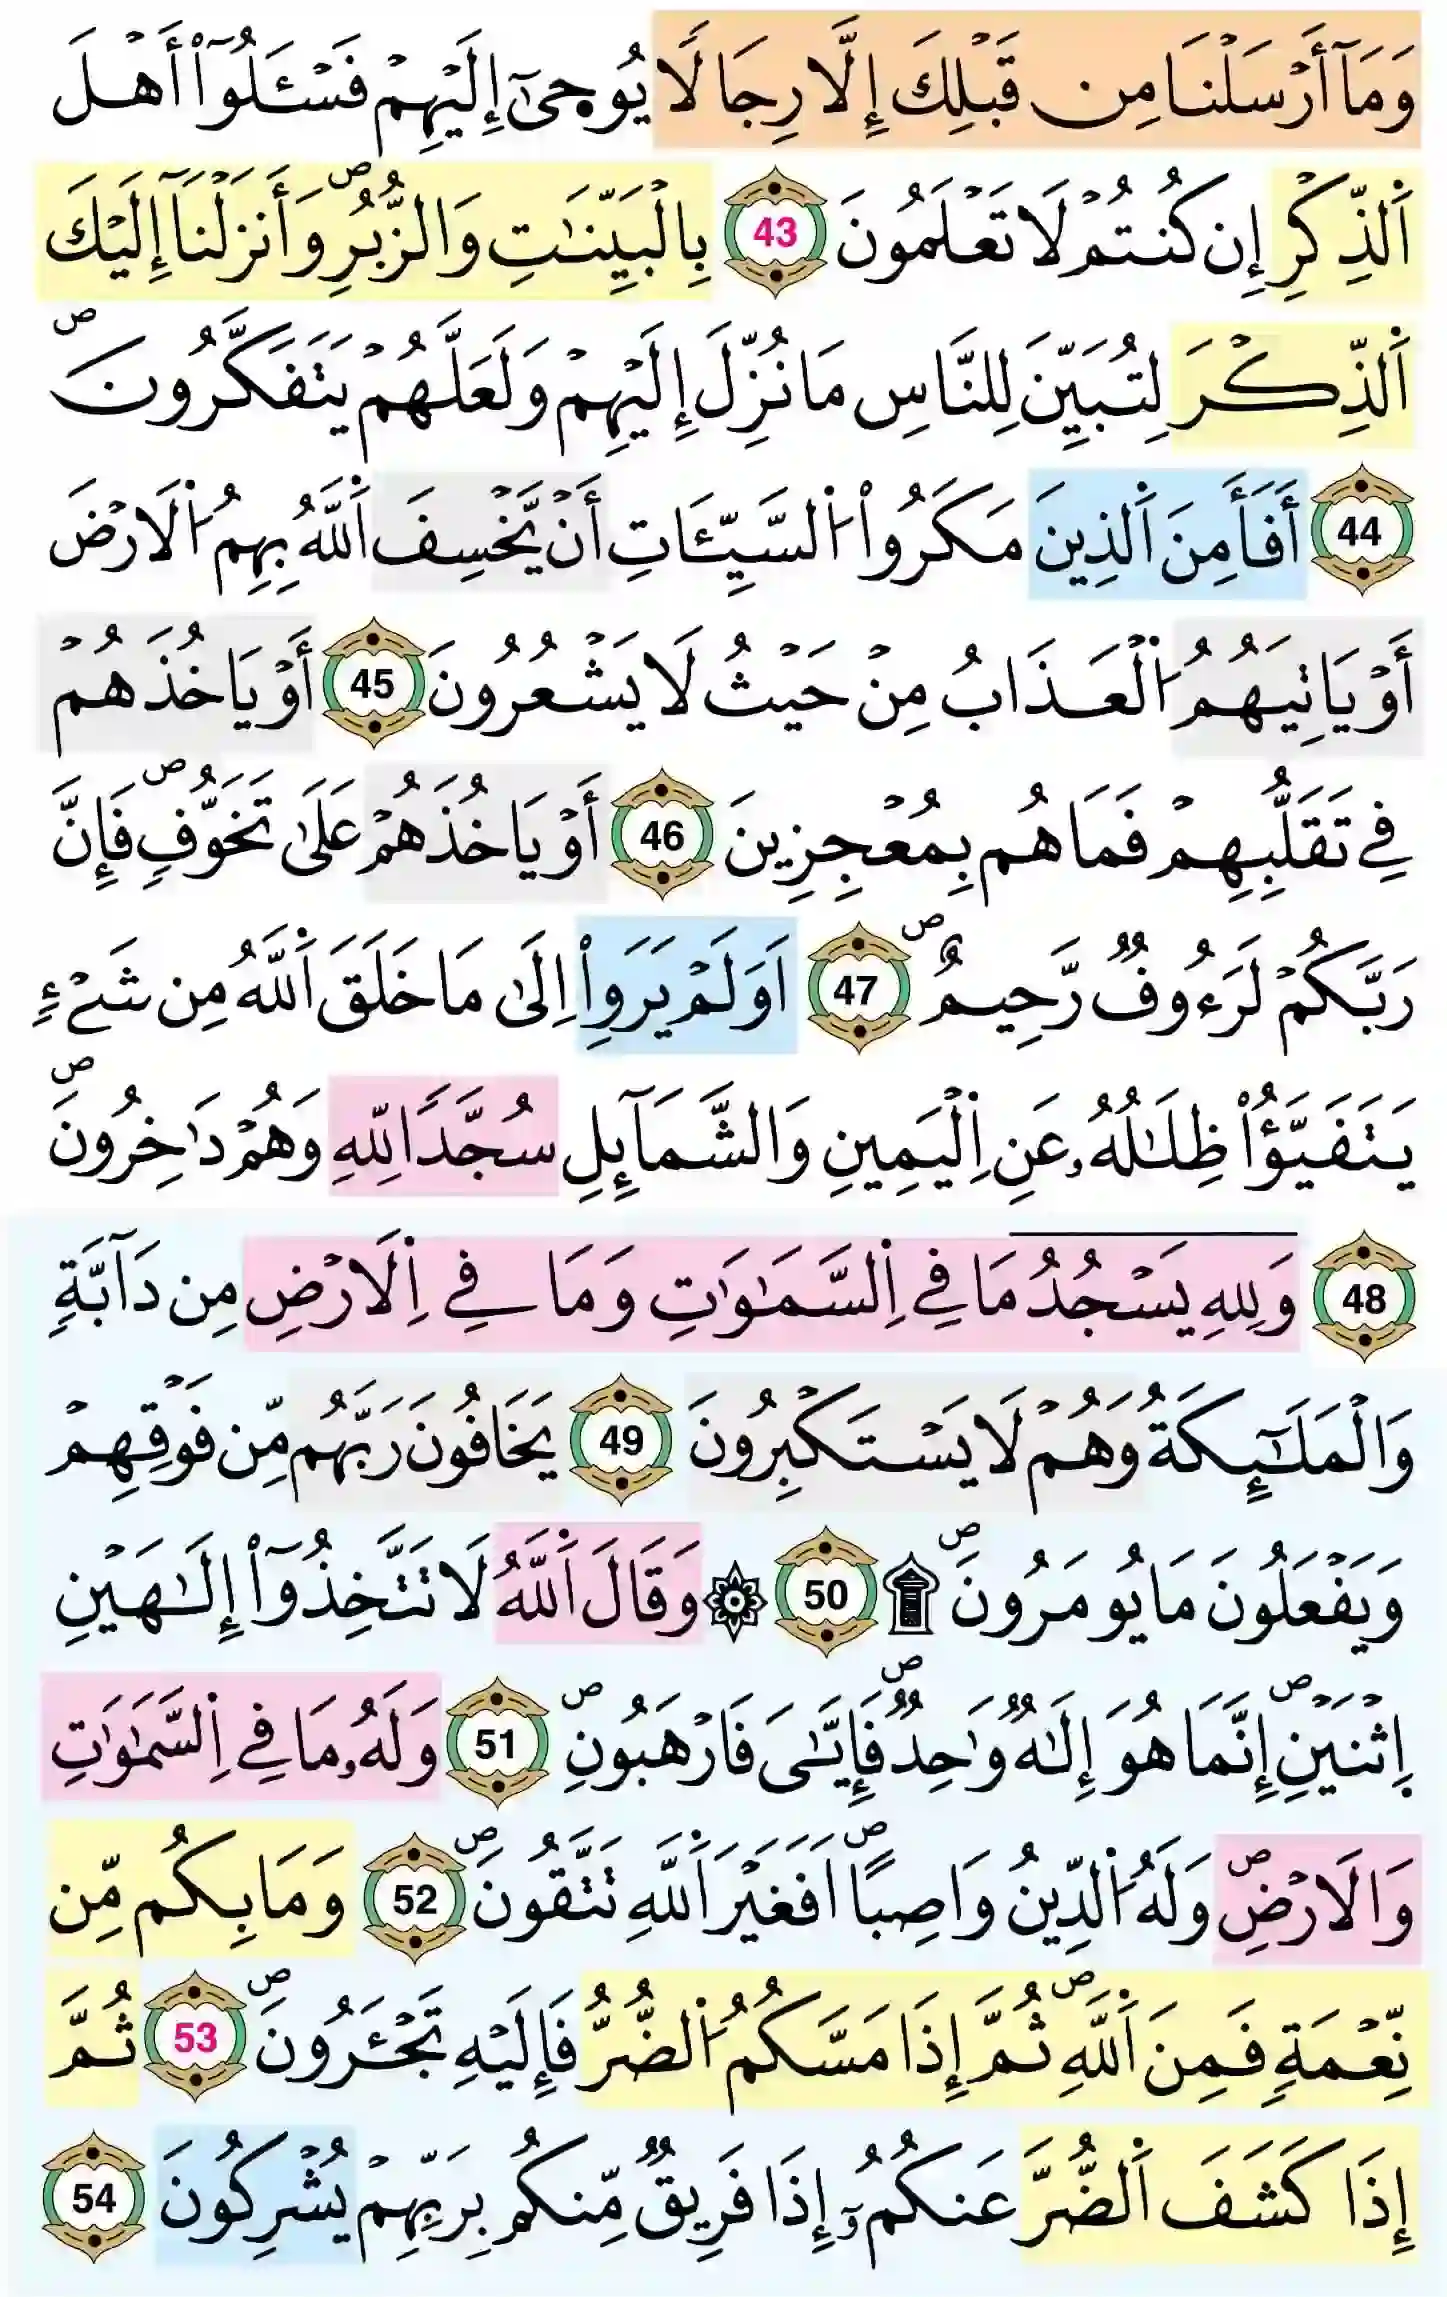 وَمَآ أَرْسَلْنَا مِن قَبْلِكَ إِلَّا رِجَالًا يُوحَىٰٓ إِلَيْهِمْ فَسْـَٔلُوٓاْ أَهْلَ
اَ۬لذِّكْرِ إِن كُنتُمْ لَا تَعْلَمُونَ 43 بِالْبَيِّنَٰتِ وَالزُّبُرِۖ وَأَنزَلْنَآ إِلَيْكَ
اَ۬لذِّكْرَ لِتُبَيِّنَ لِلنَّاسِ مَا نُزِّلَ إِلَيْهِمْ وَلَعَلَّهُمْ يَتَفَكَّرُونَۖ
44 أَفَأَمِنَ اَ۬لذِينَ مَكَرُواْ اُ۬لسَّيِّـَٔاتِ أَنْ يَّخْسِفَ اَ۬للَّهُ بِهِمُ اُ۬لَارْضَ
أَوْ يَاتِيَهُمُ اُ۬لْعَذَابُ مِنْ حَيْثُ لَا يَشْعُرُونَ 45 أَوْ يَاخُذَهُمْ
فِي تَقَلُّبِهِمْ فَمَا هُم بِمُعْجِزِينَ 46 أَوْ يَاخُذَهُمْ عَلَىٰ تَخَوُّفٍۖ فَإِنَّ
رَبَّكُمْ لَرَءُوفٌ رَّحِيمٌۖ 47 اَوَلَمْ يَرَوِاْ اِلَىٰ مَا خَلَقَ اَ۬للَّهُ مِن شَےْءٍ
يَتَفَيَّؤُاْ ظِلَٰلُهُۥ عَنِ اِ۬لْيَمِينِ وَالشَّمَآئِلِ سُجَّدًا لِلهِ وَهُمْ دَٰخِرُونَۖ
48 وَلِلهِ يَسْجُدُ مَا فِي اِ۬لسَّمَٰوَٰتِ وَمَا فِي اِ۬لَارْضِ مِن دَآبَّةٍ
وَالْمَلَٰٓئِكَةُ وَهُمْ لَا يَسْتَكْبِرُونَ 49 يَخَافُونَ رَبَّهُم مِّن فَوْقِهِمْ
وَيَفْعَلُونَ مَا يُومَرُونَۖ ۩ 50 ۞ وَقَالَ اَ۬للَّهُ لَا تَتَّخِذُوٓاْ إِلَٰهَيْنِ
اِ۪ثْنَيْنِۖ إِنَّمَا هُوَ إِلَٰهٌ وَٰحِدٌۖ فَإِيَّٰىَ فَارْهَبُونِۖ 51 وَلَهُۥ مَا فِي اِ۬لسَّمَٰوَٰتِ
وَالَارْضِۖ وَلَهُ اُ۬لدِّينُ وَاصِبًاۖ اَفَغَيْرَ اَ۬للَّهِ تَتَّقُونَۖ 52 وَمَا بِكُم مِّن
نِّعْمَةٍ فَمِنَ اَ۬للَّهِۖ ثُمَّ إِذَا مَسَّكُمُ اُ۬لضُّرُّ فَإِلَيْهِ تَجْـَٔرُونَۖ 53 ثُمَّ
إِذَا كَشَفَ اَ۬لضُّرَّ عَنكُمُۥٓ إِذَا فَرِيقٌ مِّنكُم بِرَبِّهِمْ يُشْرِكُونَ 54